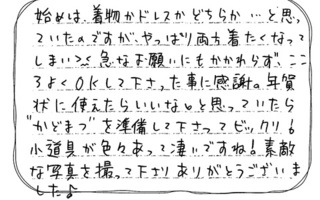 始めは、着物かドレスかどちらか…と思っ
ていたのですが、やっぱり両方着たくなって
しまい、急なお願いにもかかわらず、ここ
ろよくOKして下さった事に感謝。年賀
状に使えたらいいなぁと思っていたら
"かどまつ"を準備して下さってビックリ!
小道具が色々あって凄いですね!素敵
な写真を撮って下さりありがとうございま
した♪